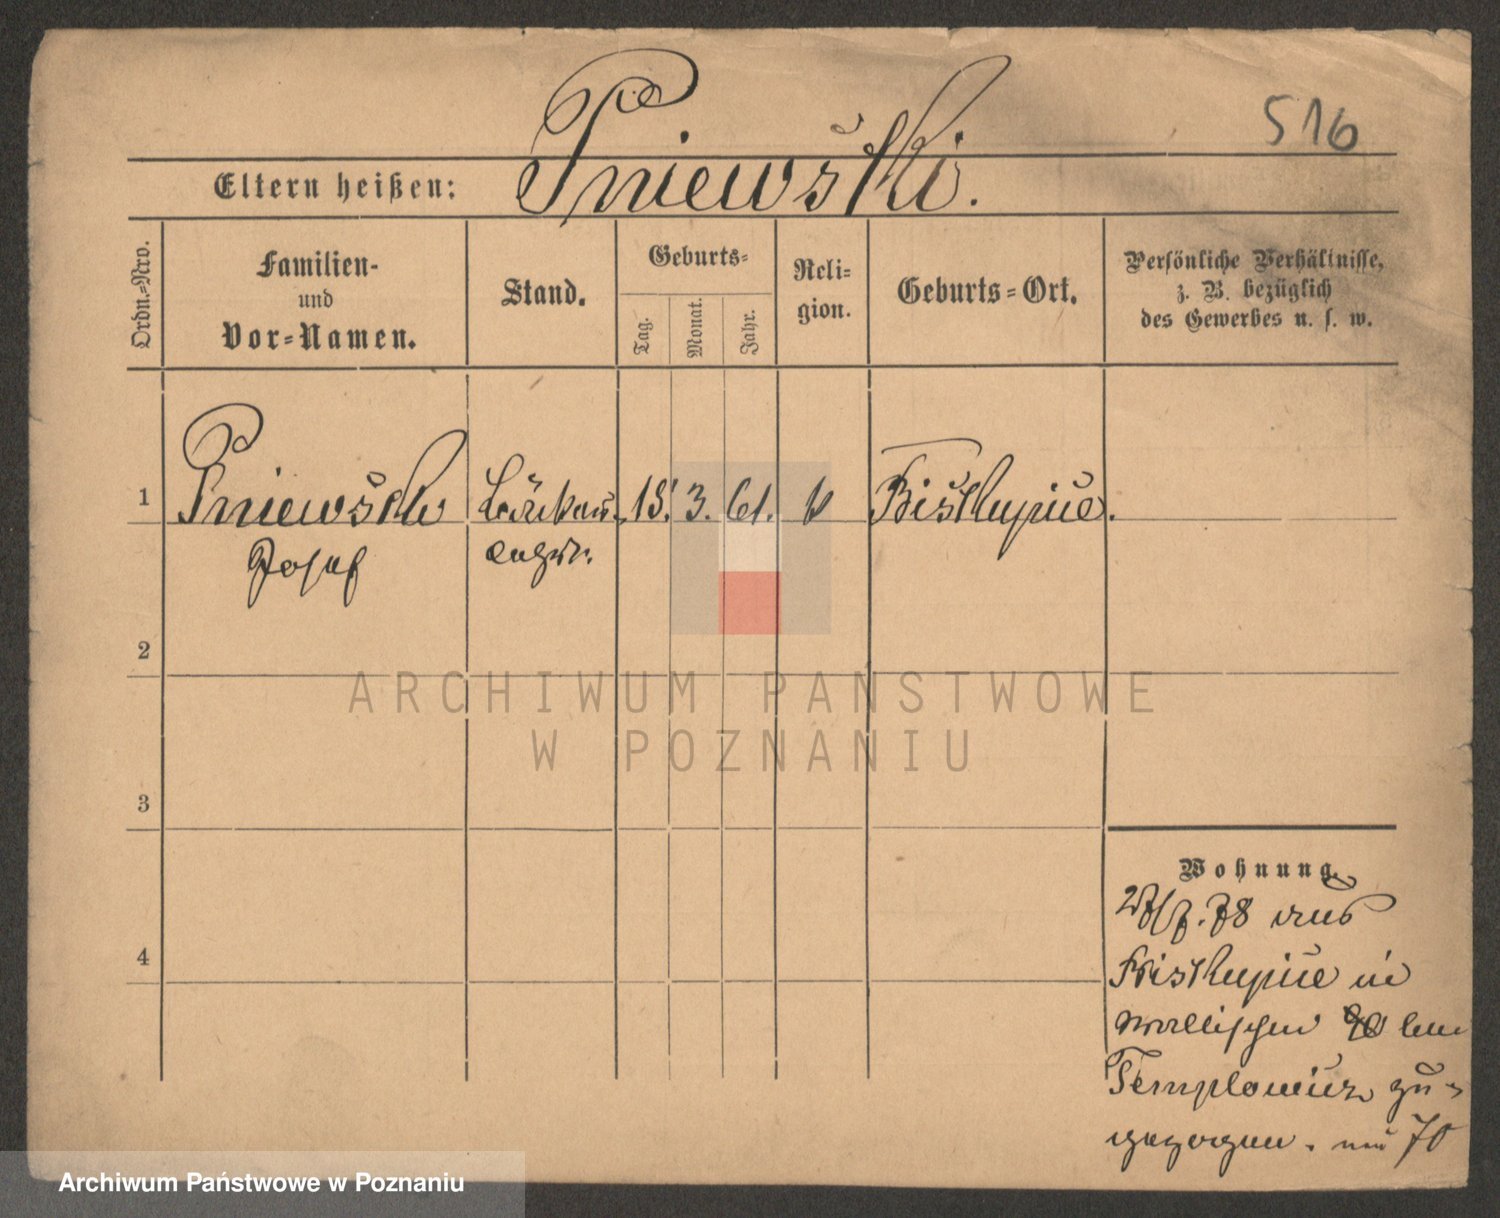 516
Eltern heißen: Pniewski.
Ordn.=Nro.
Familien-
und
Vor=Namen.
Stand.
Geburts=
Tag.
Monat.
Jahr.
Reli=
gion.
Geburts=Ort.
Persönliche Verhältnisse,
z. B. bezüglich
des Gewerbes u. s. w.
1 Pniewski 3. 61. k Biskupice.
Josef
2
3
4
Wohnung.
78 aus
Biskupice in
Wallischei bei
zu=
gezogen. 70
ARCHIWUM PAŃSTWOWE
W POZNANIU
Archiwum Państwowe w Poznaniu